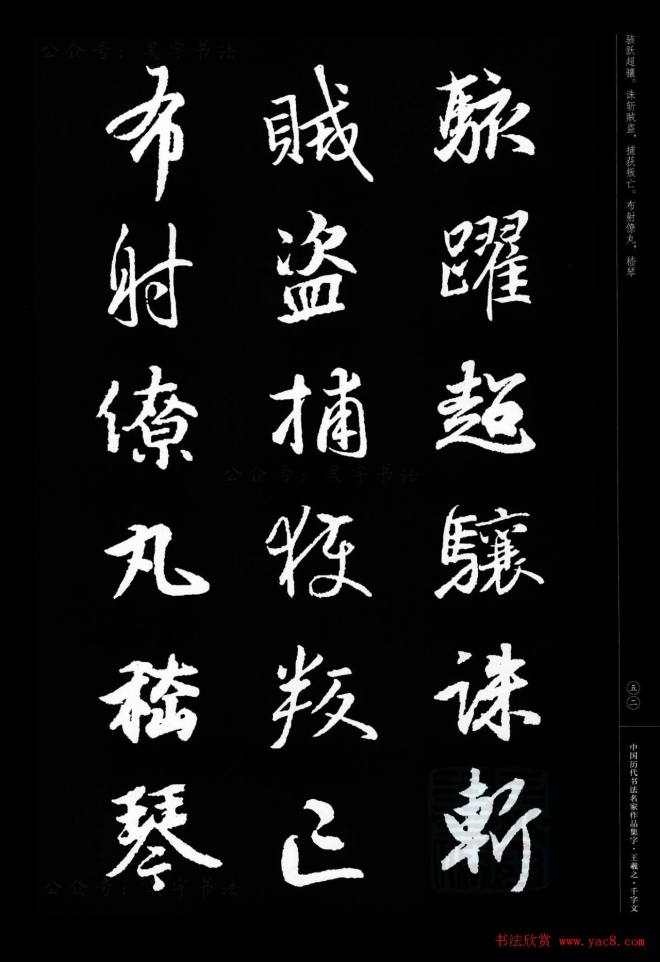 駭躍超驤誅斬
賊盜捕獲叛亡
布射僚丸嵇琴
骇跃超骧。诛斩贼盗，捕获叛亡。布射僚丸，嵇琴
五二
中国历代书法名家作品集字·王羲之·千字文
公众号：昊宇书法
公众号：昊宇书法
公众号：昊宇书法
书法欣赏 www.yac8.com